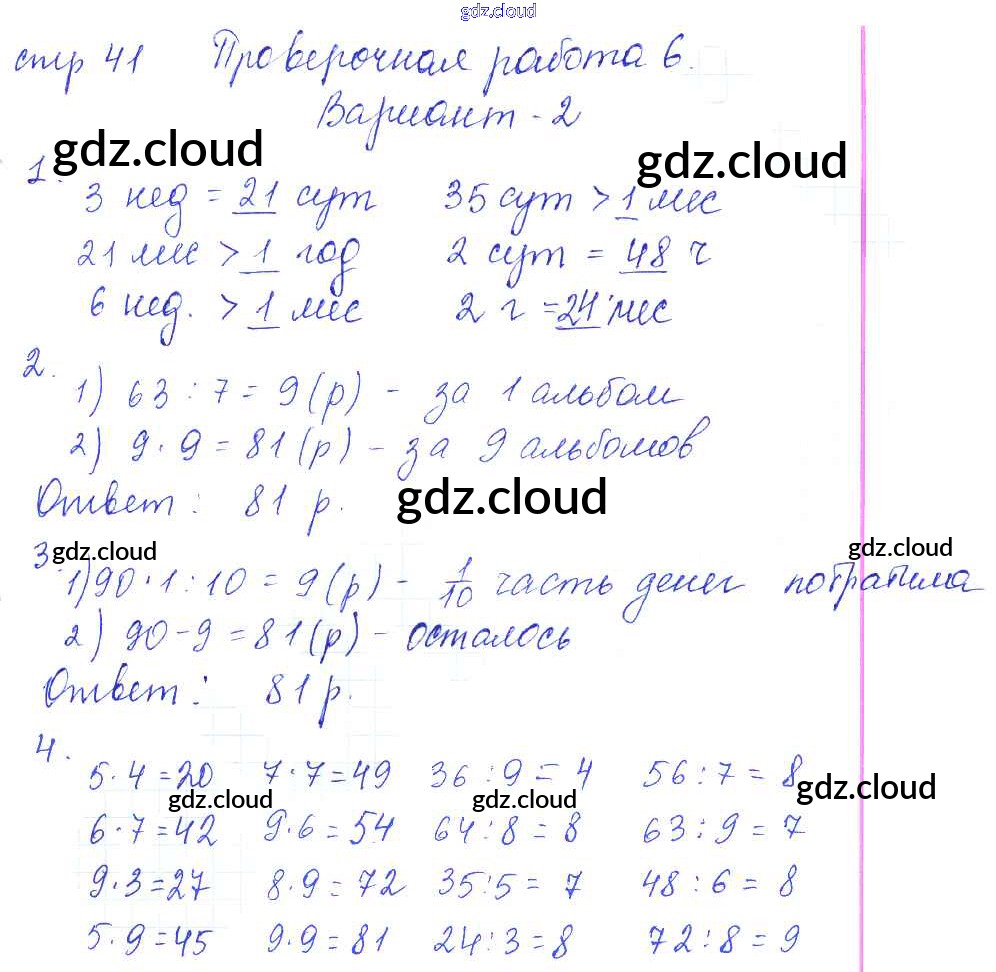 gdz.cloud
стр 41 Проверочная работа 6.
Вариант - 2
gdz.cloud
gdz.cloud
1.
3 нед = 21 сут 35 сут > 1 мес
21 мес > 1 год 2 сут = 48 ч
6 нед. > 1 мес 2 г = 24 мес
2.
1) 63 : 7 = 9 (р) - за 1 альбом
2) 9 · 9 = 81 (р) - за 9 альбомов
Ответ : 81 р.
gdz.cloud
3.
gdz.cloud
gdz.cloud
1) 90 · 1 : 10 = 9 (р) - 1/10 часть денег потратила
2) 90 - 9 = 81 (р) - осталось
Ответ : 81 р.
4.
5 · 4 = 20 7 · 7 = 49 36 : 9 = 4 56 : 7 = 8
gdz.cloud
gdz.cloud
gdz.cloud
6 · 7 = 42 9 · 6 = 54 64 : 8 = 8 63 : 9 = 7
9 · 3 = 27 8 · 9 = 72 35 : 5 = 7 48 : 6 = 8
5 · 9 = 45 9 · 9 = 81 24 : 3 = 8 72 : 8 = 9